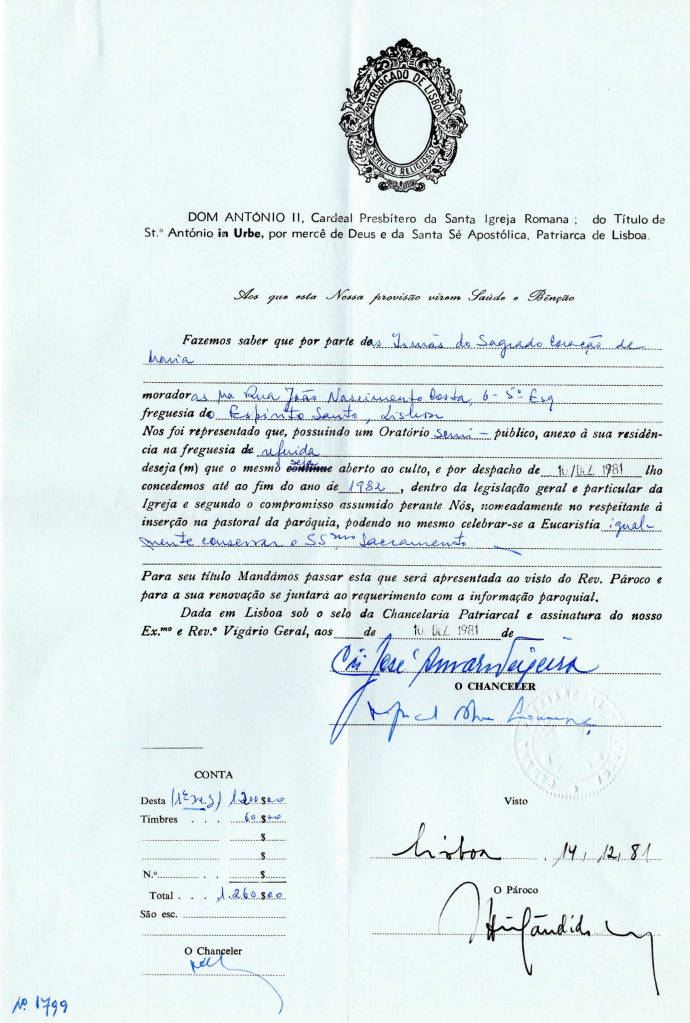 PATRIARCADO DE LISBOA
SERVIÇO RELIGIOSO
DOM ANTÓNIO II, Cardeal Presbítero da Santa Igreja Romana ; do Título de
St.º António in Urbe, por mercê de Deus e da Santa Sé Apostólica, Patriarca de Lisboa.
Aos que esta Nossa provisão virem Saúde e Bênção
Fazemos saber que por parte das Irmãs do Sagrado Coração de
Maria
moradoras na Rua João Nascimento Costa, 6 - 5º Esq
freguesia do Espírito Santo, Lisboa
Nos foi representado que, possuindo um Oratório semi - público, anexo à sua residên-
cia na freguesia de referida
deseja(m) que o mesmo continue seja aberto ao culto, e por despacho de 10/DEZ. 1981 lho
concedemos até ao fim do ano de 1982, dentro da legislação geral e particular da
Igreja e segundo o compromisso assumido perante Nós, nomeadamente no respeitante à
inserção na pastoral da paróquia, podendo no mesmo celebrar-se a Eucaristia igual-
mente conservar o SS.mo Sacramento
Para seu título Mandámos passar esta que será apresentada ao visto do Rev. Pároco e
para a sua renovação se juntará ao requerimento com a informação paroquial.
Dada em Lisboa sob o selo da Chancelaria Patriarcal e assinatura do nosso
Ex.mo e Rev.º Vigário Geral, aos de 10. DEZ. 1981 de
O CHANCELER
CONTA
Desta (1ª vez) 1.200$00
Timbres . . . 60$00
$
$
N.º $
Total . . . 1.260$00
São esc.
O Chanceler
Visto
Lisboa, 14, 12, 81
O Pároco
Nº 1799